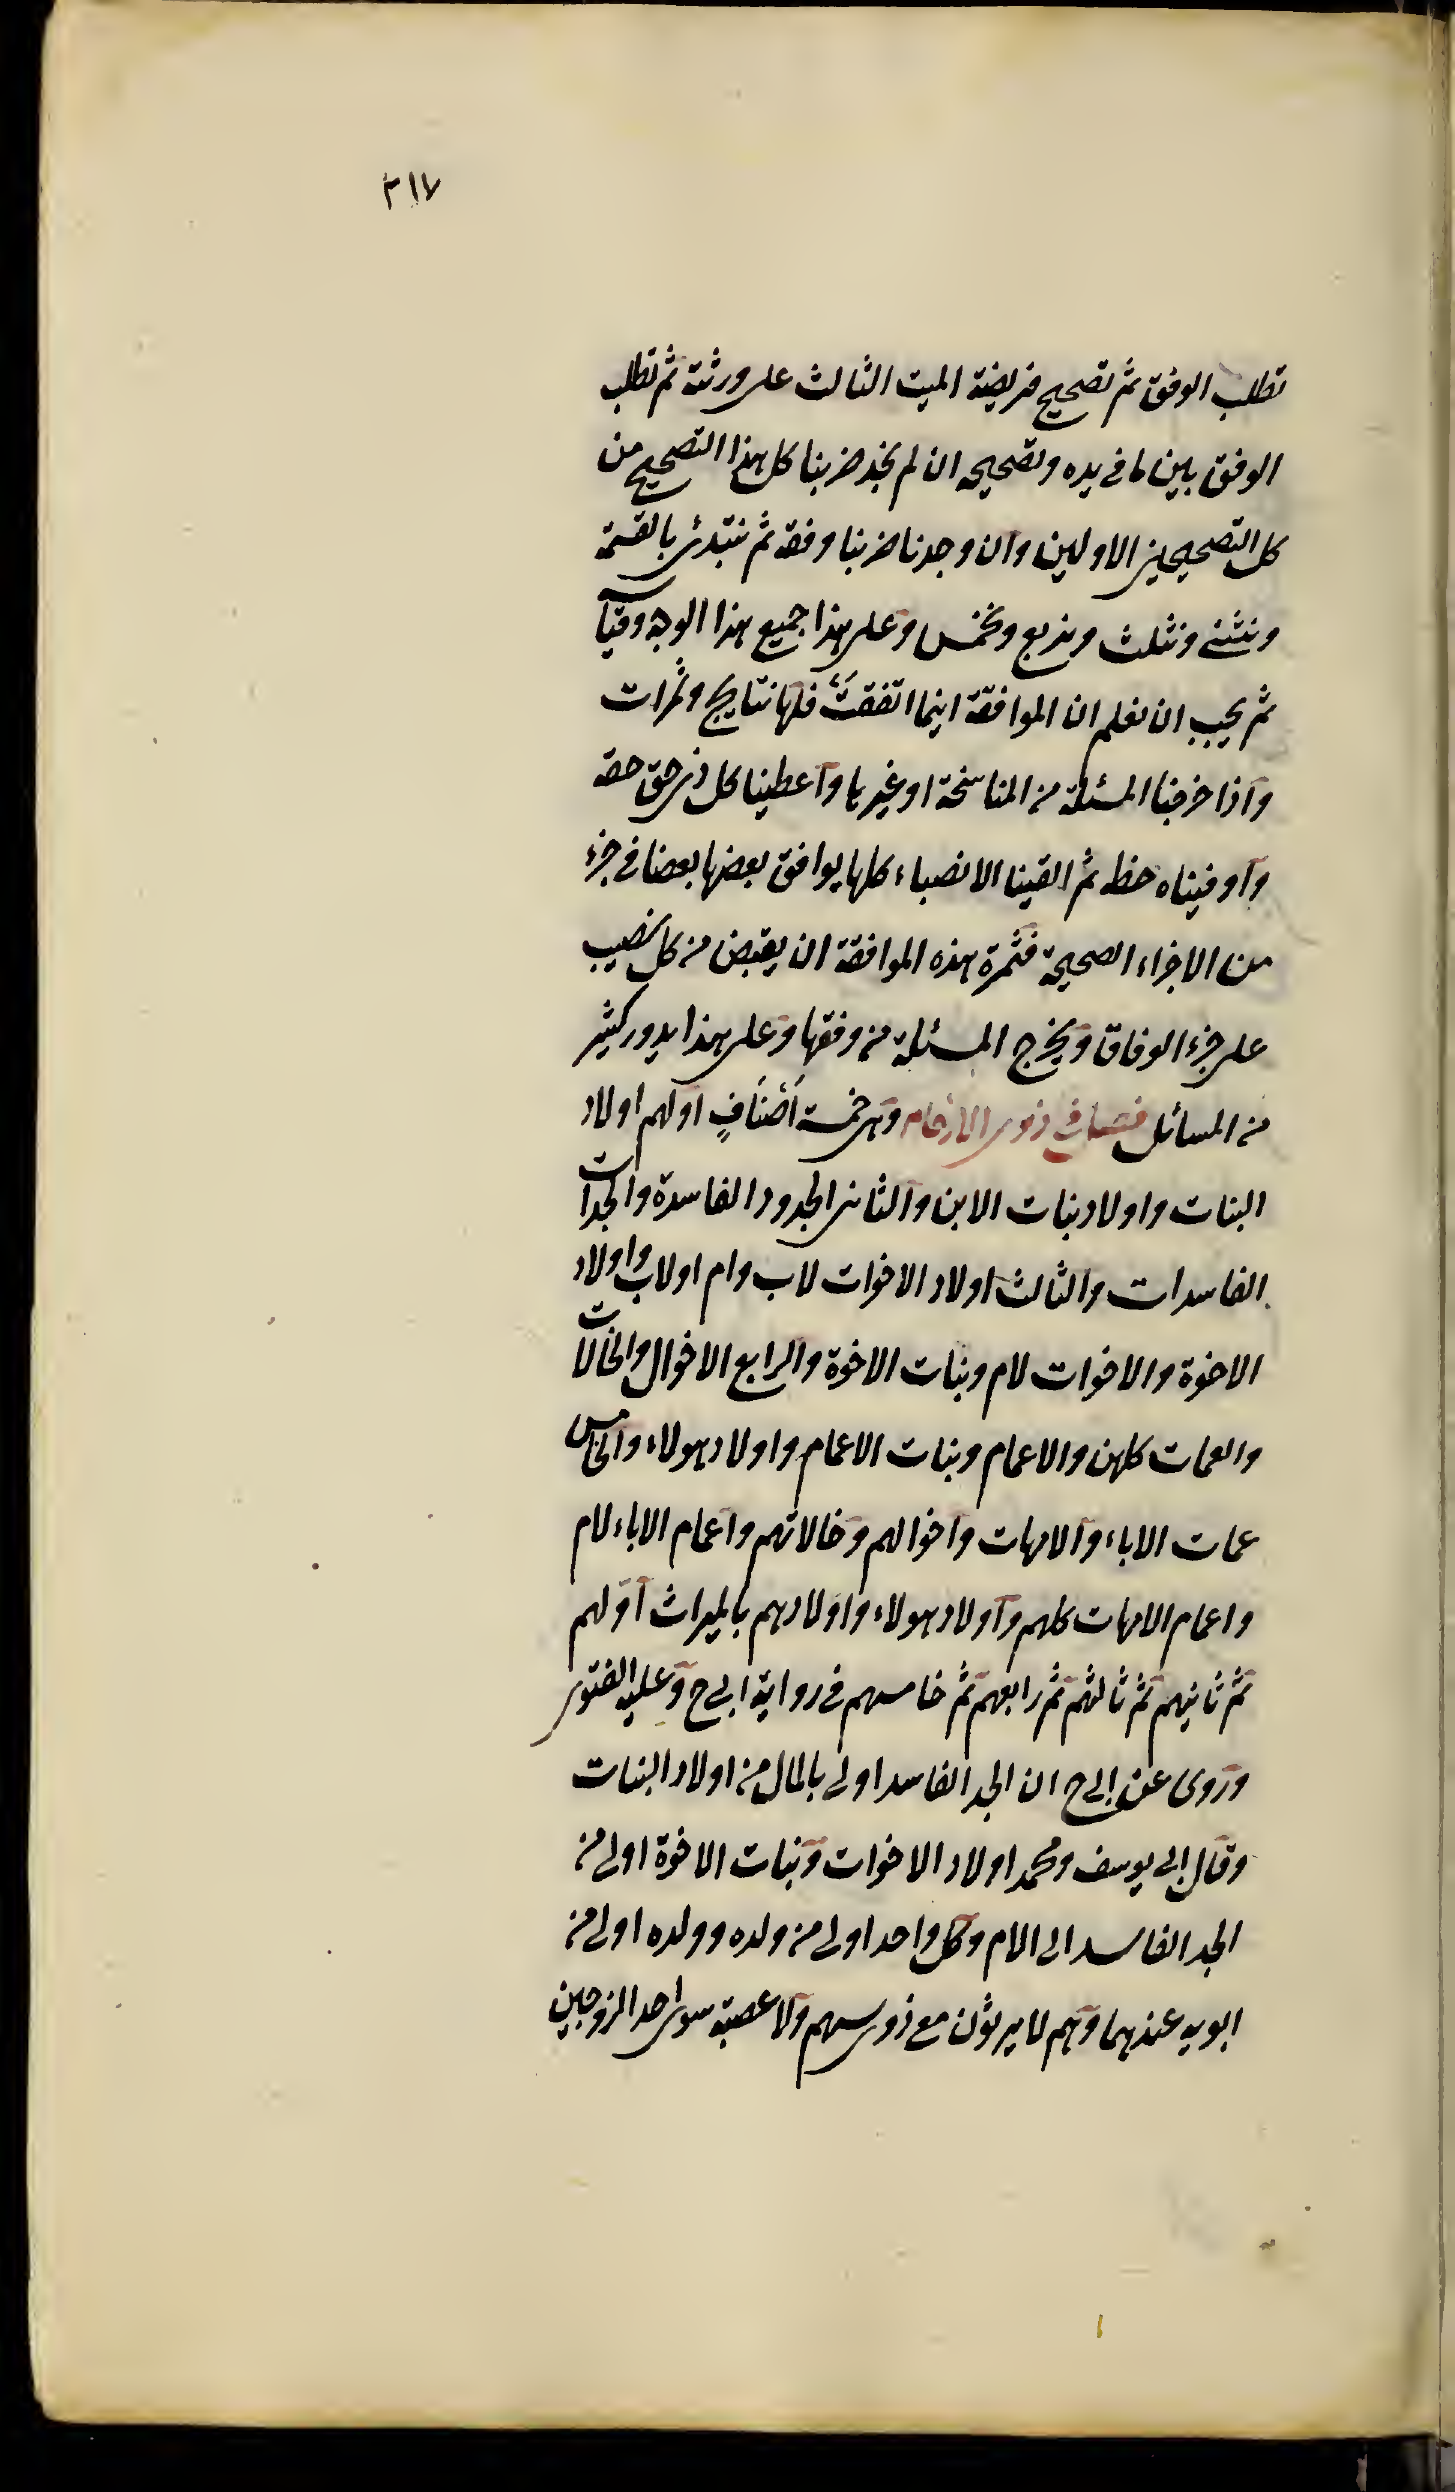 ٣١٧
تطلب الوفق ثم تصحيح فريضة الميت الثالث على ورثته ثم تطلب
الوفق بين ما فى يده وتصحيحه ان لم نجد ضربنا كل هذا التصحيح من
كل التصحيحين الاولين وان وجدنا ضربنا وفقه ثم نبتدئ بالقسمة
ونثنى ونثلث ونربع ونخمس وعلى هذا جميع هذا الوجه وقيا
ثم يجب ان نعلم ان الموافقة اينما اتفقت فلها نتايج وثمرات
واذا خرجنا المسئلة من المناسخة او غيرها واعطينا كل ذى حق حقه
واوفيناه حظه ثم القينا الانصباء كلها يوافق بعضها بعضا فى جزء
من الاجزاء الصحيحة فثمرة هذه الموافقة ان يقبض من كل نصيب
على جزء الوفاق ويخرج المسئلة من وفقها وعلى هذا يدور كثير
من المسائل فصل فى ذوى الارحام وهى خمسة اَصْنَافٍ اولهم اولاد
البنات واولاد بنات الابن والثانى الجدود الفاسدة والجدات
الفاسدات والثالث اولاد الاخوات لاب وام اولاب واولاد
الاخوة والاخوات لام وبنات الاخوة والرابع الاخوال والخالات
والعمات كلهن والاعمام وبنات الاعمام واولاد هولاء والخامس
عمات الاباء والامهات واخوالهم وخالاتهم واعمام الاباء لام
واعمام الامهات كلهم واولاد هولاء واولادهم بالميراث اولهم
ثم ثانيهم ثم ثالثهم ثم رابعهم ثم خامسهم فى رواية ابى ح وعليه الفتوى
وروى عن ابى ح ان الجد الفاسد اولى بالمال من اولاد البنات
وقال ابى يوسف ومحمد اولاد الاخوات وبنات الاخوة اولى من
الجد الفاسد الى الام وكل واحد اولى من ولده وولده اولى من
ابويه عندهما وهم لا يرثون مع ذوى سهم ولا عصبة سوى احد الزوجين